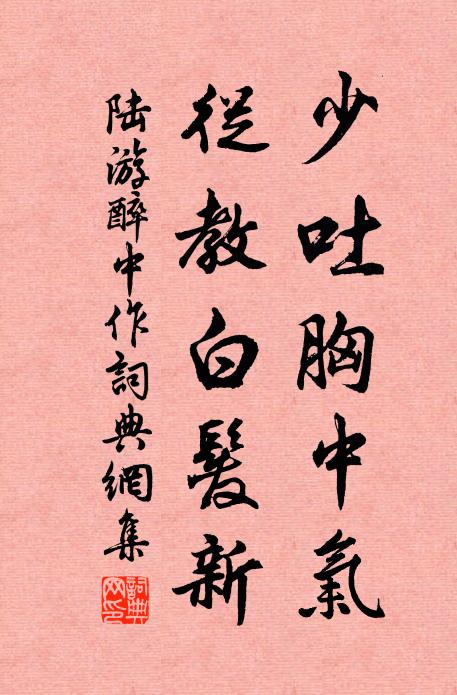 少吐胸中氣
從教白髮新
陸游醉中作詞典網集
詞典網印